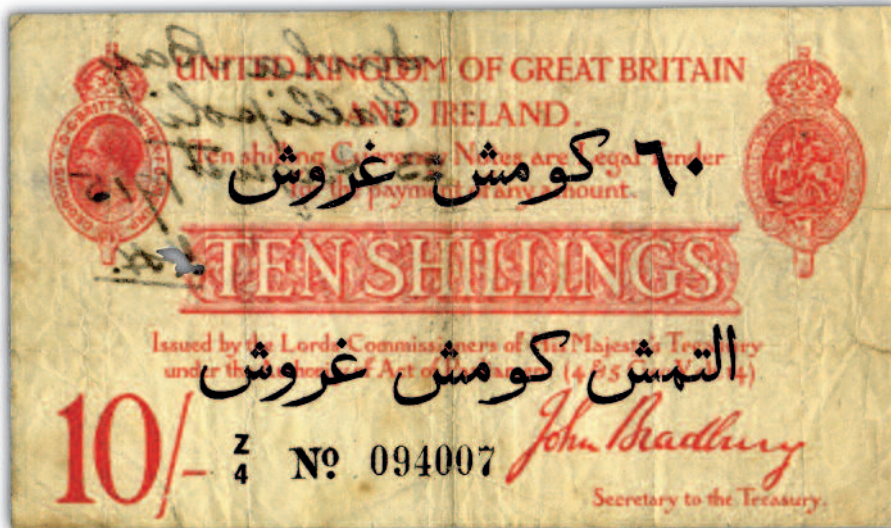 UNITED KINGDOM OF GREAT BRITAIN
AND IRELAND.
Ten shilling Currency Notes are Legal Tender
for the payment of any amount.
٦٠ كومش غروش
TEN SHILLINGS
Issued by the Lords Commissioners of His Majesty's Treasury
under the Authority of Act of Parliament (4 & 5 Geo. V
التمش كومش غروش
10/-
Z
4
Nº 094007
John Bradbury
Secretary to the Treasury.
Bay
Gallipoli
1915